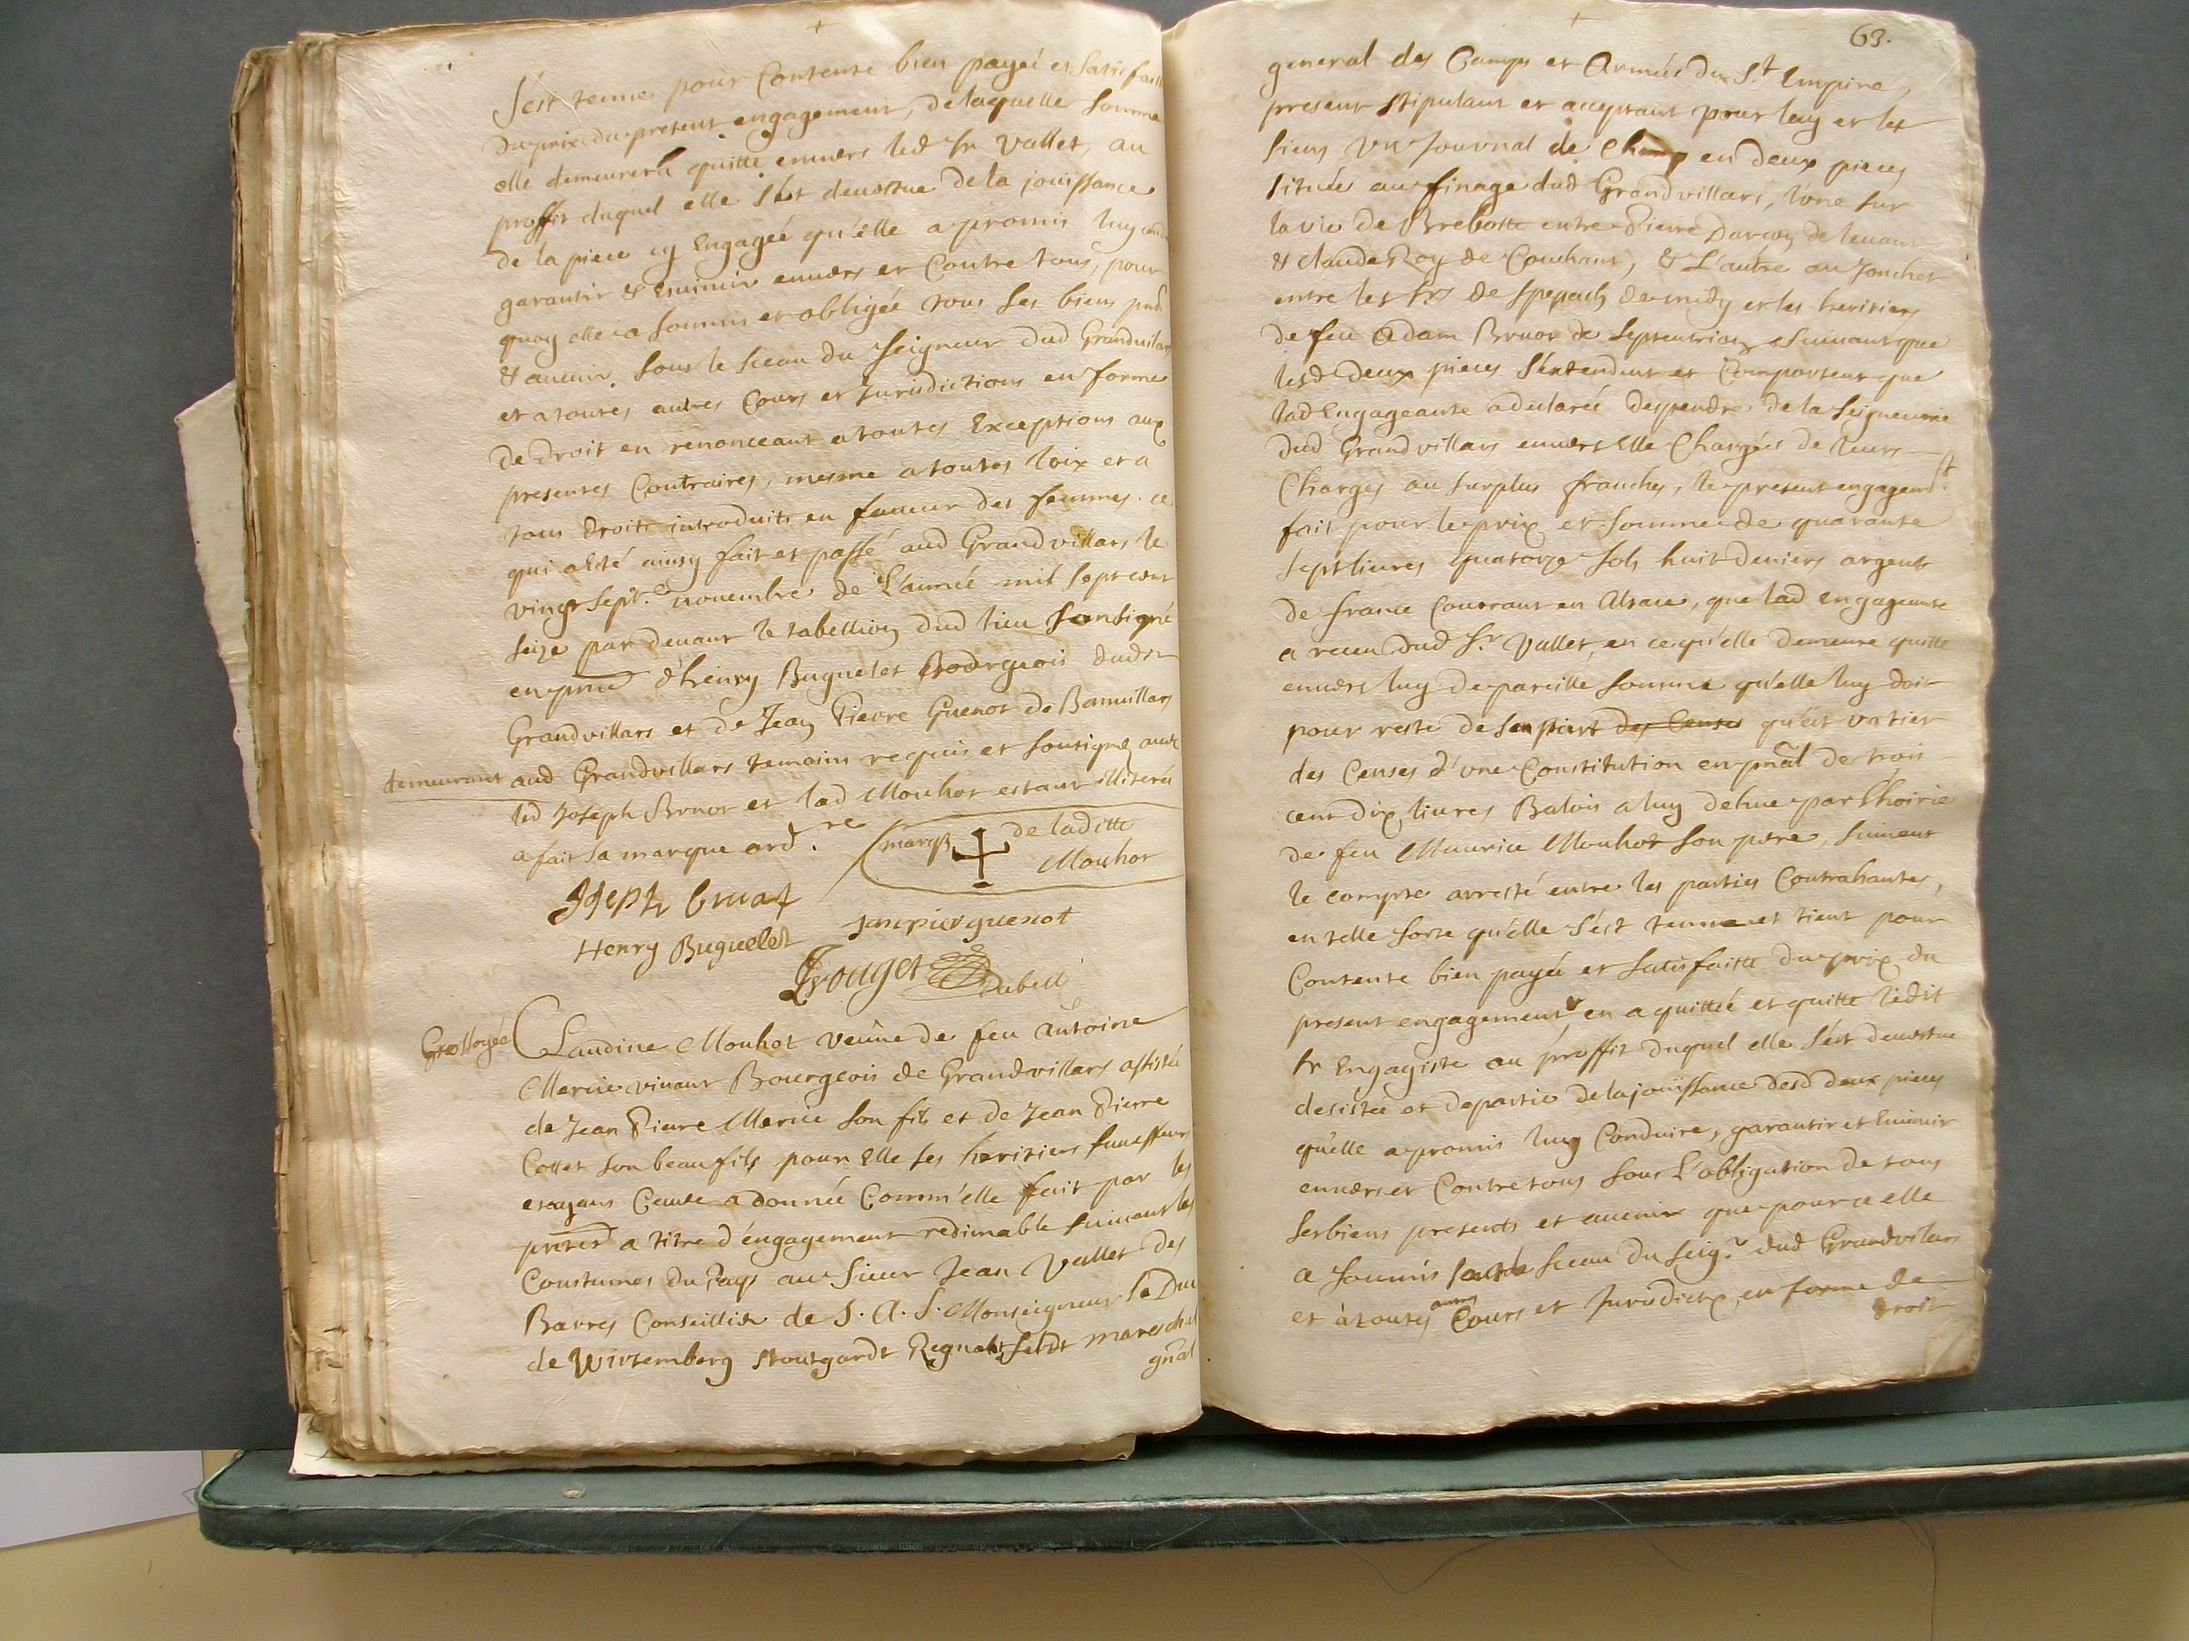 S'est tenue pour Contente bien payeé et satisfaitte
du prix du present engagement, de laquelle somme
elle demeurera quitte enuers led Sr Vallet, au
proffit duquel elle s'est deuestue de la joüissance
de la piece cy Engagée qu'elle a promis luy
garantir & enuers et Contre tous, pour
quoy elle a soumis et obligée tous ses biens
& auenir. sous le sceau du Seigneur dud Granduilars
et a toutes autres Cours et Jurisdictions en forme
de droit en renonceant a toutes Exceptions aux
presentes Contraires, mesme a toutes loix et a
tous droits introduits en faueur des femmes. ce
qui a esté ainsy fait et passé aud Grandvillars le
vingt sept.e nouembre de L'année mil sept cent
seize par deuant le tabellion dud lieu sousigné
en d'henry Buguelet Bourgeois dudt
Grandvillars et de Jean Pierre Guenot de
demeurant aud Grandvillars temoins requis et sousignez auec
led Joseph Bruot et lad Mouhot estant illiterée
a fait sa marque ord.re
marque de laditte
Mouhot
Jseph bruat
Jan pier guenot
Henry Buguelet
Trouget Tabell
Grossoyée
Claudine Mouhot veuue de feu Antoine
Mercie viuant Bourgeois de Grandvillars assistée
de Jean Pierre Mercie son fils et de Jean Pierre
Cottet son beau fils pour Elle ses heritiers successeurs
et ayans Cause a donnée Comm'elle fait par les
pntes a titre d'engagement redimable suiuant les
Coustumes du Pays au Sieur Jean Vallet des
Barres Conseillier de S. A. S. Monseigneur Le Duc
de Wirtemberg Stoutgardt Regnant, feldt mareschal
gnãl
63.
general des Camps et Armées du St Empire,
present stipulant et acceptant pour luy et les
siens un Journal de Champ en deux pieces
situées au finage dud Grandvillars, l'une sur
la vie de Brebotte entre Pierre de leuant
& claude Roy de Couchant, & L'autre au Jonchet
entre les Srs de de midy et les heritiers
de feu Adam Bruot de septentrion suiuant que
lesd deux pieces s'extendent et Comportent que
lad Engageante a declarée despendre de la Seigneurie
dud Grandvillars enuers Elle Chargées de leurs
Charges au surplus franches, le present engagemt
fait pour le prix et somme de quarante
sept liures quatorze sols huit deniers argent
de france Courrant en Alsace, que lad engageante
a receu dud Sr Vallet, en ce qu'elle demeure quitte
enuers luy de pareille somme qu'elle luy doit
pour reste de sa part des Censes qu'est
des Censes d'une Constitution en pnãl de trois
cent dix liures Balois a luy dehue par l'hoirie
de feu Maurice Mouhot son pere, suiuant
le compte arresté entre les parties Contrahantes,
en telle sorte qu'elle s'est tenue et tient pour
Contente bien payée et satisfaitte du prix du
present engagement, en a quittée et quitte ledit
Sr Engagiste au proffit duquel elle s'est deuestue
desistée et departie de la joüissance desd deux pieces
qu'elle a promis luy Conduire, garantir et
enuers et Contre tous sous L'obligation de tous
ses biens presents et auenir que pour ce elle
a soumis sous le sceau du Seigr dud Grandvilars
et à toutes autres Cours et Jurisdict en forme de
droit